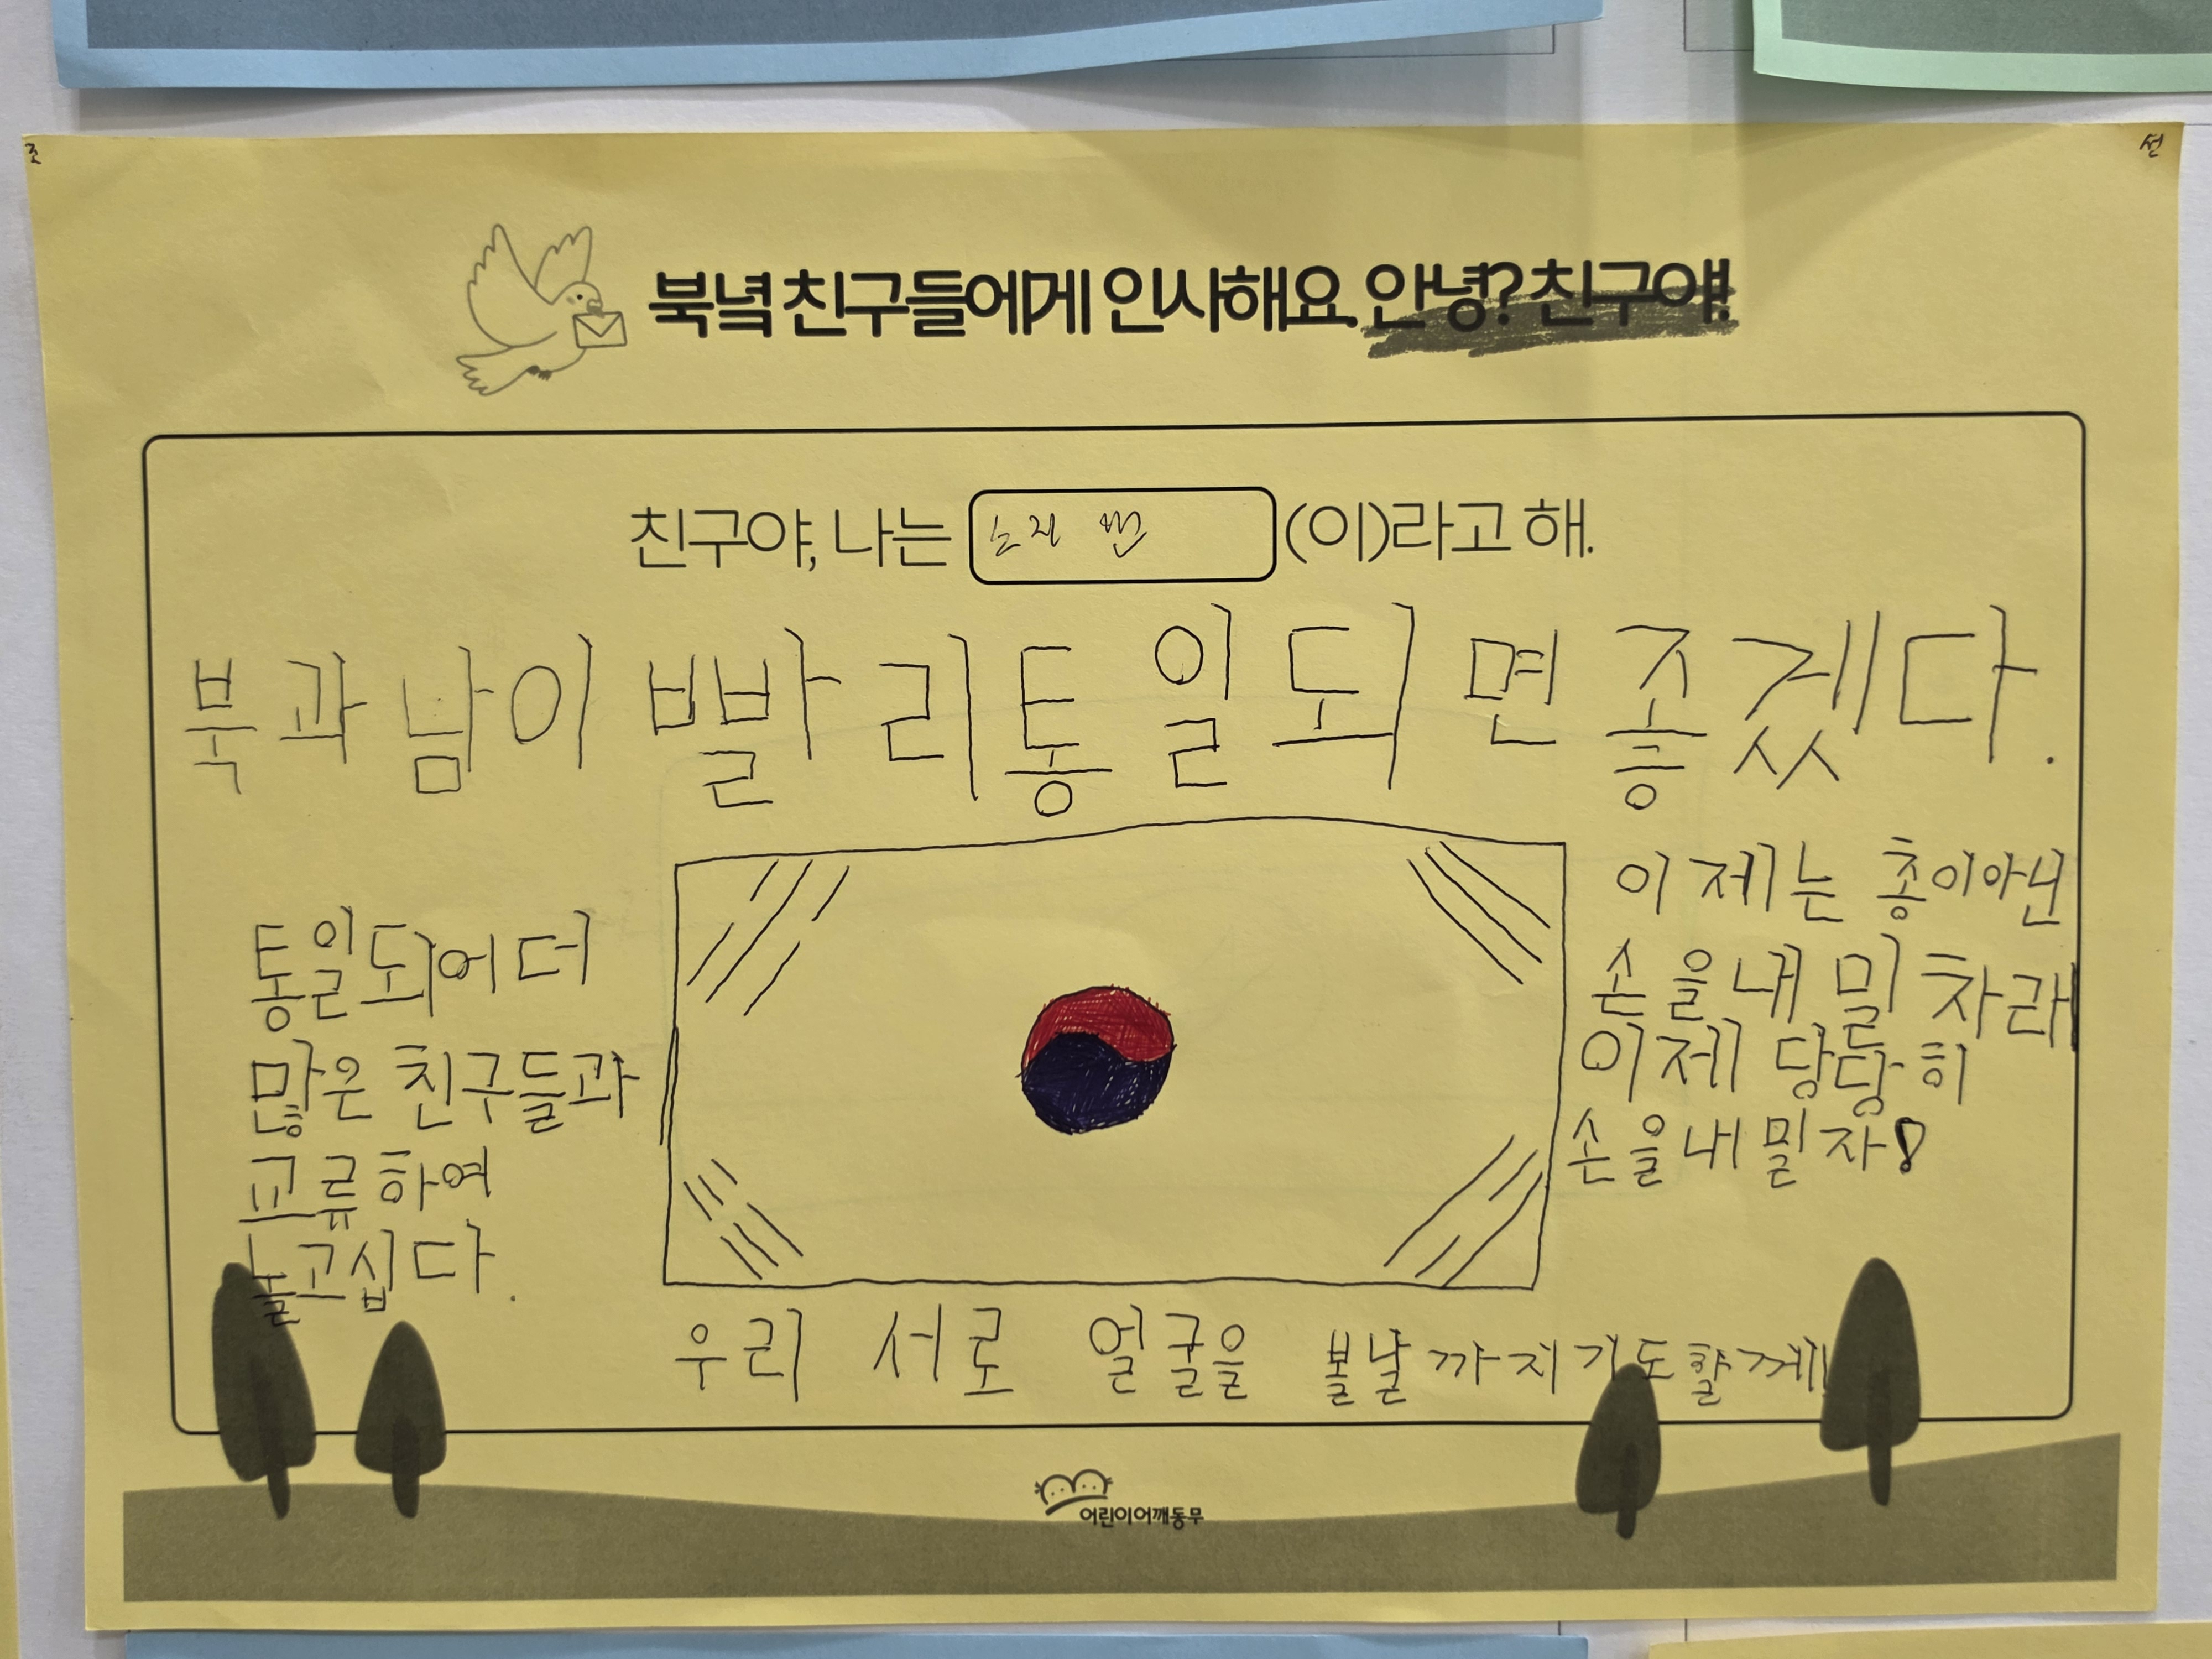 조
선
북녘 친구들에게 인사해요. 안녕? 친구야!
친구야, 나는 (이)라고 해.
북과 남이 빨리 통일되면 종겠다.
통일되어 더
많은 친구들과
교류하여
놀고십다.
이제는 총이아닌
손을 내밀 차래
이제 당당히
손을 내밀자!
우리 서로 얼굴을 볼날까지 기도할게!
어린이어깨동무